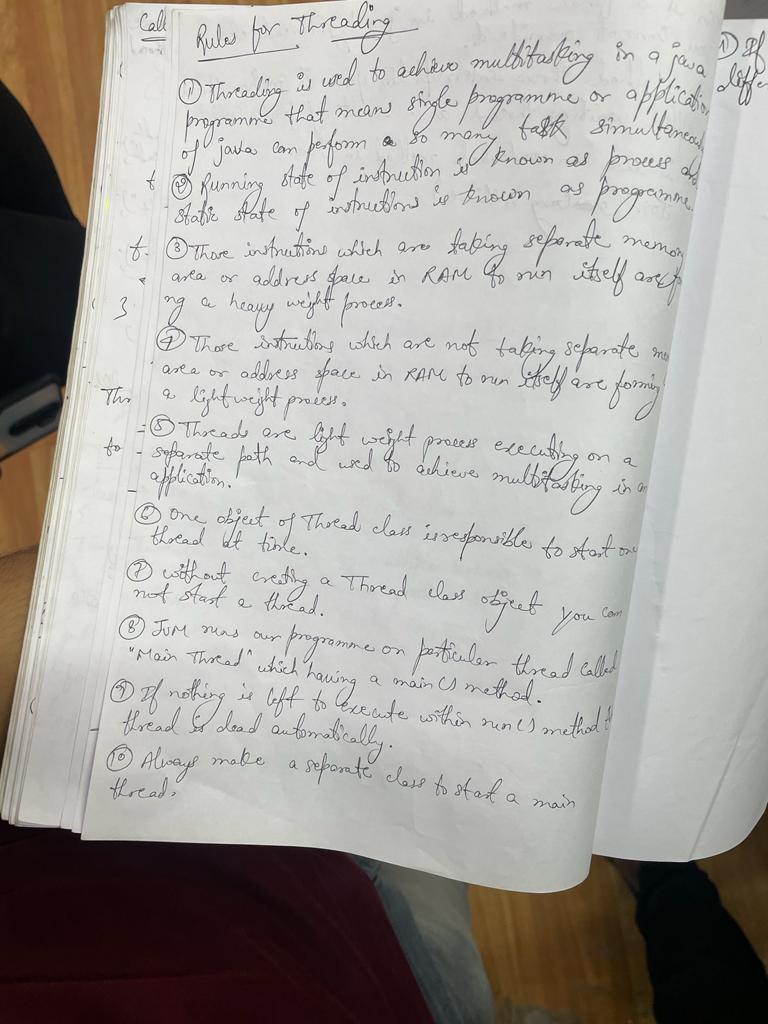 Call
Rules for Threading
① Threading is used to achieve multitasking in a java
programme that means single programme or application
of java can perform so many task simultaneous
② Running state of instruction is known as process and
static state of instructions is known as programme.
③ Those instructions which are taking separate memory
area or address space in RAM to run itself are
ng a heavy weight process.
④ Those instructions which are not taking separate me
area or address space in RAM to run itself are forming
a lightweight process.
⑤ Threads are light weight process executing on a
separate path and used to achieve multitasking in an
application.
⑥ One object of Thread class is responsible to start one
thread at time.
⑦ without creating a Thread class object you can
not start a thread.
⑧ JVM runs our programme on particular thread called
"Main Thread" which having a main() method.
⑨ If nothing is left to execute within run() method
thread is dead automatically.
⑩ Always make a separate class to start a main
thread.
t
t.
3
Thr
to
① If
diffe